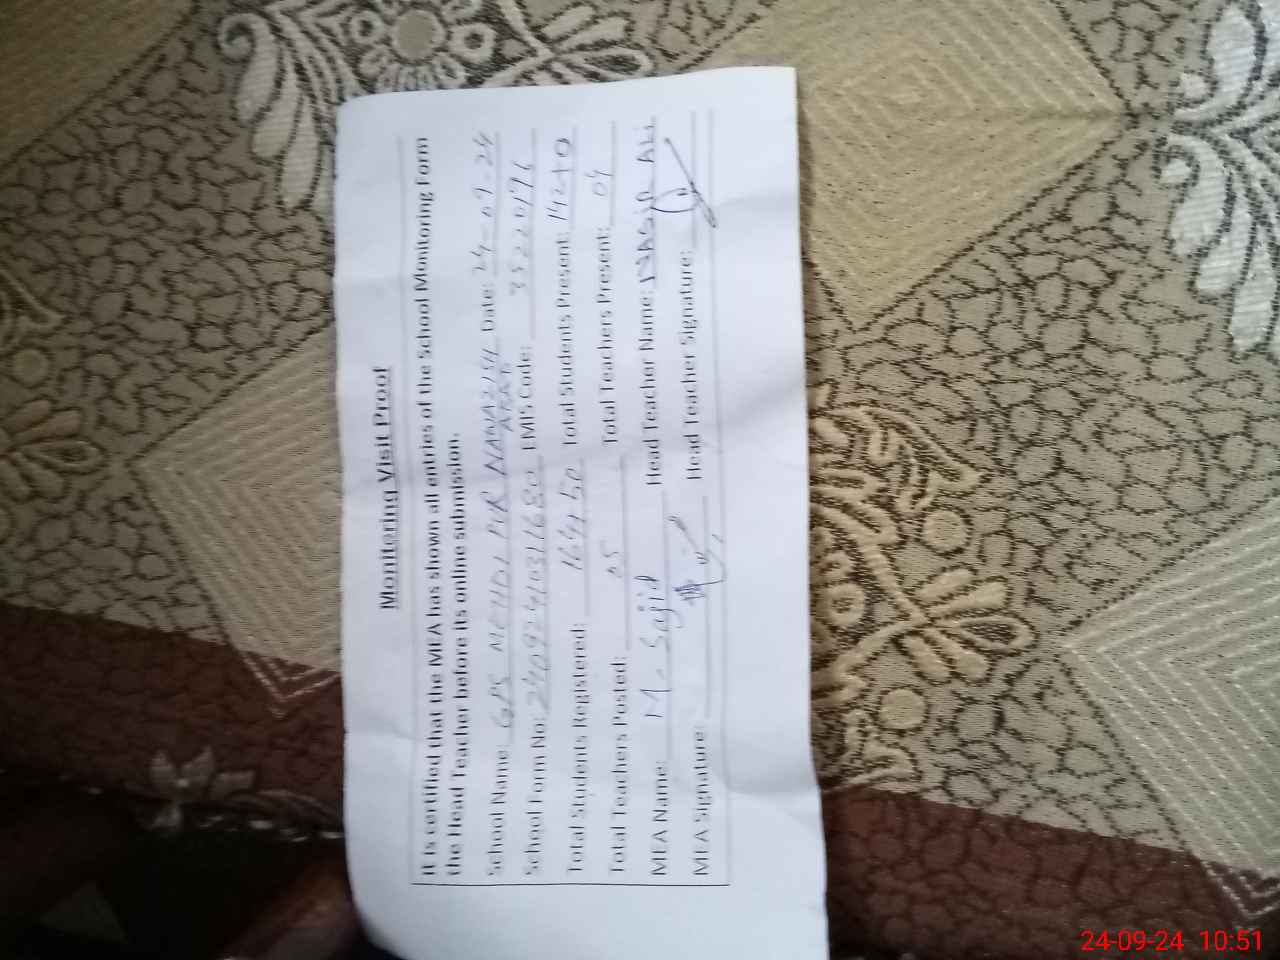 Monitoring Visit Proof
It is certified that the MEA has shown all entries of the School Monitoring Form
the Head Teacher before its online submission.
School Name: GPS MEHDI PUR Date: 24-09-24
School Form No: EMIS Code: 35220196
Total Students Registered: Total Students Present:
Total Teachers Posted: 05 Total Teachers Present: 04
MEA Name: M. Sajid Head Teacher Name: NASIR ALI
MEA Signature: Head Teacher Signature:
24-09-24 10:51